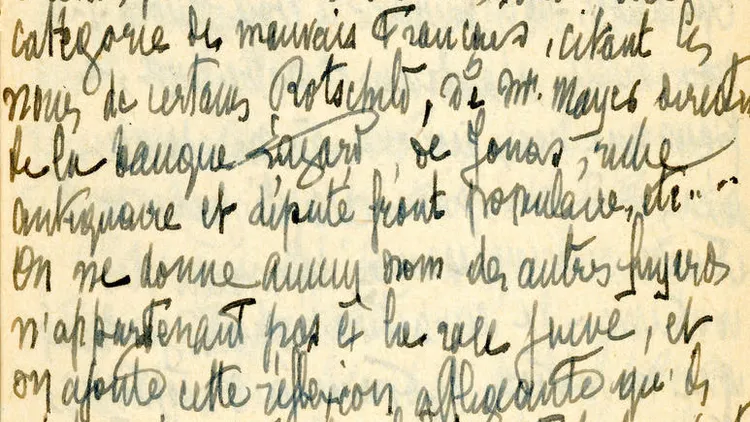 catégorie des mauvais Français, citant les
noms de certains Rotschild, de Mr. Mayer directeu
de la banque Lazard, de Jonas, riche
antiquaire et député front populaire, etc...
On ne donne aucun nom des autres fuyards
n'appartenant pas à la race juive, et
on ajoute cette réflexion affligeante qu'ils